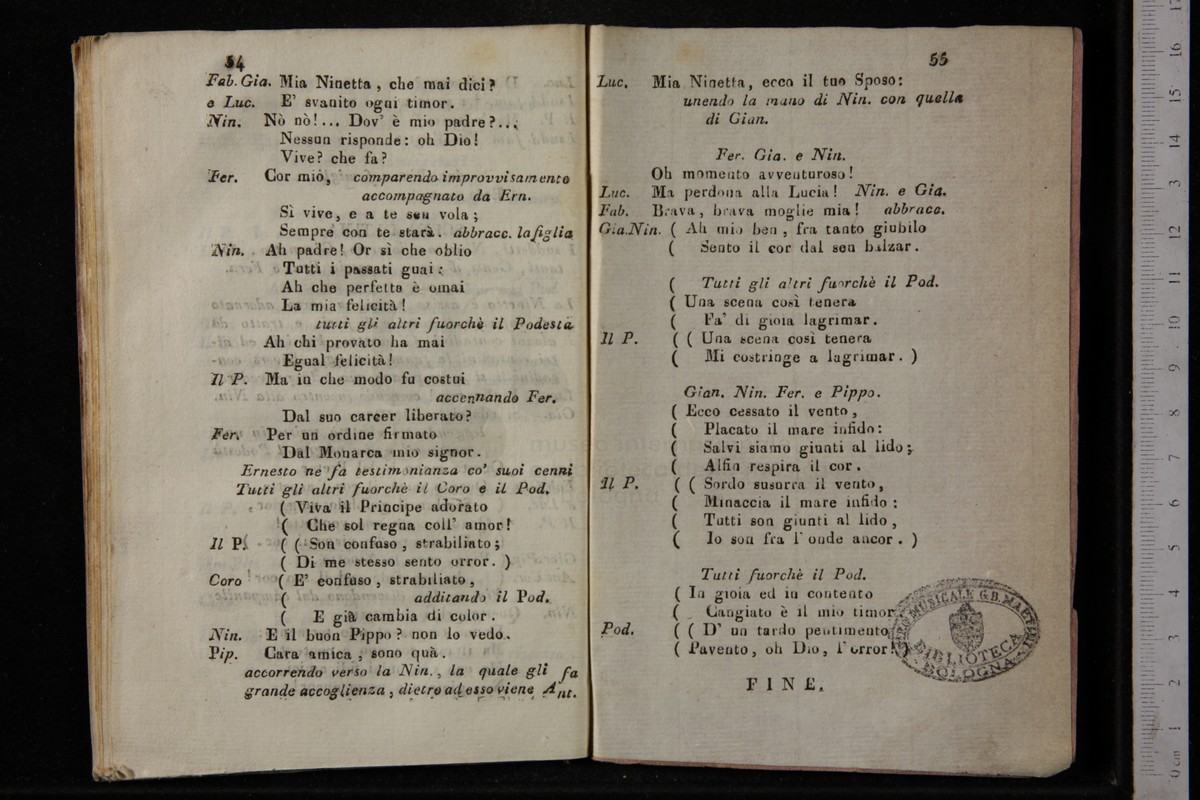 54
Fab. Gia. Mia Ninetta, che mai dici?
e Luc. E' svanito ogni timor.
Nin. Nò nò!... Dov' è mio padre?...
Nessun risponde: oh Dio!
Vive? che fa?
Fer. Cor mio, comparendo improvvisamente
accompagnato da Ern.
Sì vive, e a te sen vola;
Sempre con te starà. abbracc. la figlia
Nin. Ah padre! Or sì che oblio
Tutti i passati guai:
Ah che perfetta è omai
La mia felicità!
tutti gli altri fuorchè il Podestà
Ah chi provato ha mai
Egual felicità!
Il P. Ma in che modo fu costui
accennando Fer.
Dal suo carcer liberato?
Fer. Per un ordine firmato
Dal Monarca mio signor.
Ernesto ne fa testimonianza co' suoi cenni
Tutti gli altri fuorchè il Coro e il Pod.
( Viva il Principe adorato
( Che sol regna coll' amor!
Il P. ( ( Son confuso, strabiliato;
( Di me stesso sento orror. )
Coro ( E' confuso, strabiliato,
( additando il Pod.
( E già cambia di color.
Nin. E il buon Pippo? non lo vedo.
Pip. Cara amica, sono quà.
accorrendo verso la Nin., la quale gli fa
grande accoglienza, dietro ad esso viene Ant.
55
Luc. Mia Ninetta, ecco il tuo Sposo:
unendo la mano di Nin. con quella
di Gian.
Fer. Gia. e Nin.
Oh momento avventuroso!
Luc. Ma perdona alla Lucia! Nin. e Gia.
Fab. Brava, brava moglie mia! abbracc.
Gia.Nin. ( Ah mio ben, fra tanto giubilo
( Sento il cor dal sen balzar.
( Tutti gli altri fuorchè il Pod.
( Una scena così tenera
( Fa' di gioia lagrimar.
Il P. ( ( Una scena così tenera
( Mi costringe a lagrimar. )
Gian. Nin. Fer. e Pippo.
( Ecco cessato il vento,
( Placato il mare infido:
( Salvi siamo giunti al lido;
( Alfin respira il cor.
Il P. ( ( Sordo susurra il vento,
( Minaccia il mare infido:
( Tutti son giunti al lido,
( Io son fra l' onde ancor. )
Tutti fuorchè il Pod.
( In gioia ed in contento
( Cangiato è il mio timor
Pod. ( ( D' un tardo pentimento
( Pavento, oh Dio, l' orror! )
MUSICALE G.B. MARTINI
BIBLIOTECA
BOLOGNA
FINE.
0 cm 1 2 3 4 5 6 7 8 9 10 11 12 13 14 15 16 17